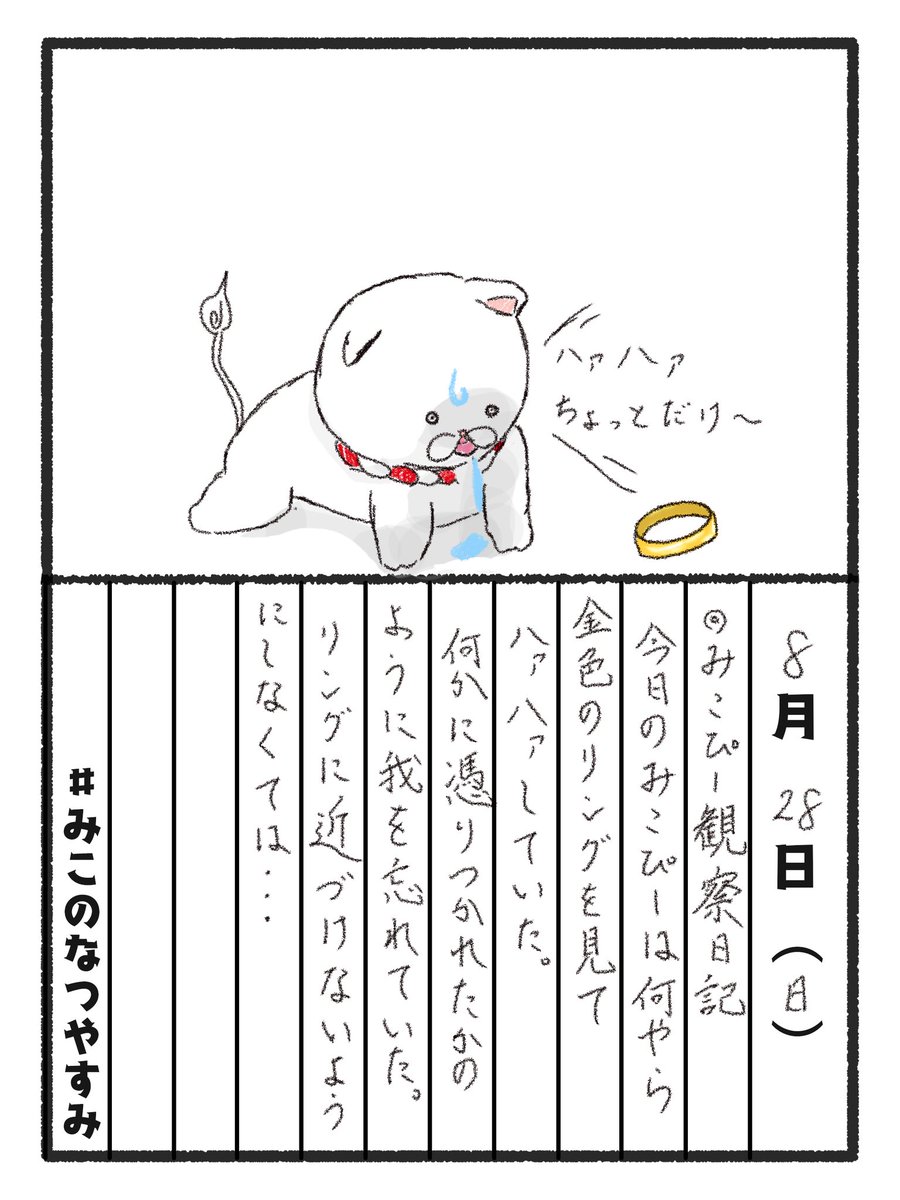 ハァハァ
ちょっとだけ〜
8月28日(日)
◎みこぴー観察日記
今日のみこぴーは何やら
金色のリングを見て
ハァハァしていた。
何かに憑りつかれたかの
ように我を忘れていた。
リングに近づけないよう
にしなくては・・・
#みこのなつやすみ